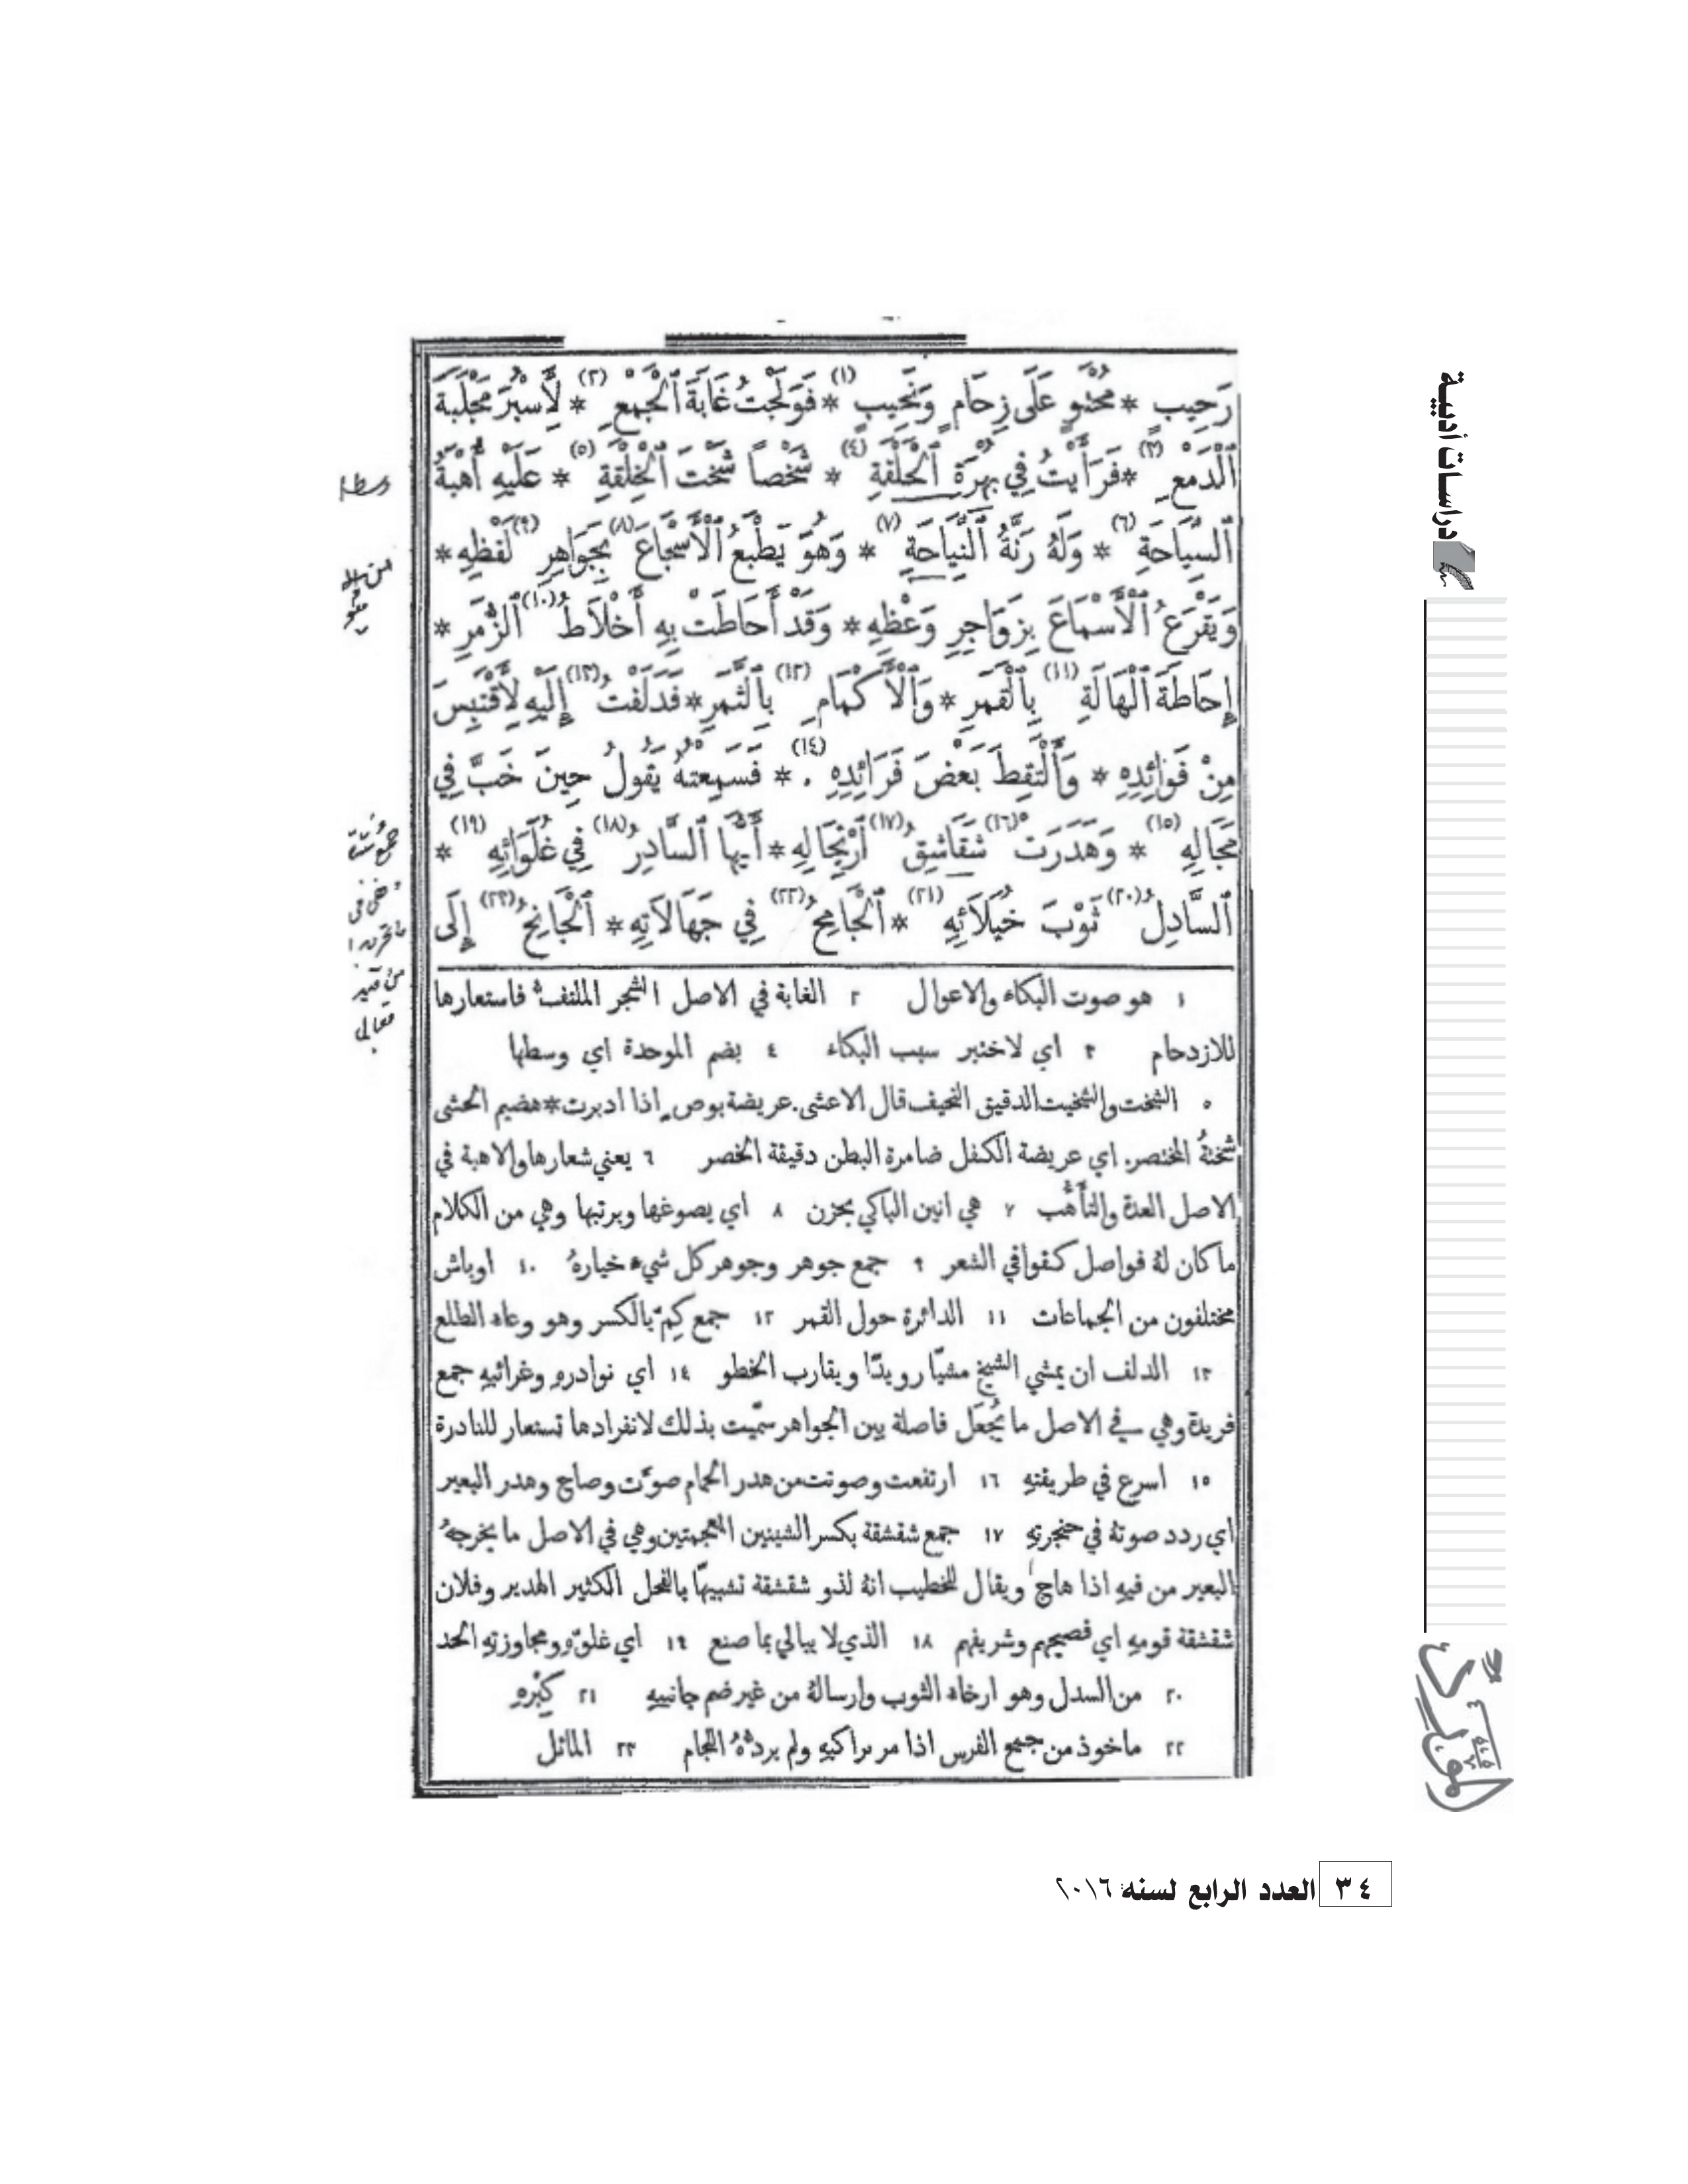 دراسات أدبية
رَحِيبٍ * مُحْتَوٍ عَلَى زِحَامٍ وَنَحِيبٍ (١) * فَوَلَجْتُ غَابَةَ ٱلْجَمْعِ (٢) * لِأَسْبُرَ مَجْلَبَةَ
ٱلدَّمْعِ (٣) * فَرَأَيْتُ فِي بُهْرَةِ ٱلْحَلْقَةِ (٤) * شَخْصاً شَخْتَ ٱلْخِلْقَةِ (٥) * عَلَيْهِ أُهْبَةُ
ٱلسِّيَاحَةِ (٦) * وَلَهُ رَنَّةُ ٱلنِّيَاحَةِ (٧) * وَهُوَ يَطْبَعُ ٱلْأَسْجَاعَ (٨) بِجَوَاهِرِ (٩) لَفْظِهِ *
وَيَقْرَعُ ٱلْأَسْمَاعَ بِزَوَاجِرِ وَعْظِهِ * وَقَدْ أَحَاطَتْ بِهِ أَخْلَاطُ (١٠) ٱلزُّمَرِ *
إِحَاطَةَ ٱلْهَالَةِ (١١) بِٱلْقَمَرِ * وَٱلْأَكْمَامِ (١٢) بِٱلثَّمَرِ * فَدَلَفْتُ (١٣) إِلَيْهِ لِأَقْتَبِسَ
مِنْ فَوَائِدِهِ * وَأَلْتَقِطَ بَعْضَ فَرَائِدِهِ (١٤) . * فَسَمِعْتُهُ يَقُولُ حِينَ خَبَّ فِي
مَجَالِهِ (١٥) * وَهَدَرَتْ (١٦) شَقَاشِقُ (١٧) ٱرْتِجَالِهِ * أَيُّهَا ٱلسَّادِرُ (١٨) فِي غُلَوَائِهِ (١٩) *
ٱلسَّادِلُ (٢٠) ثَوْبَ خُيَلَائِهِ (٢١) * ٱلْجَامِحُ (٢٢) فِي جَهَالَاتِهِ * ٱلْجَانِحُ (٢٣) إِلَى
وسطها
١ هو صوت البكاء والاعوال ٢ الغابة في الاصل الشجر الملتف فاستعارها
للازدحام ٣ اي لاختبر سبب البكاء ٤ بضم الموحدة اي وسطها
٥ الشخت والشخيت الدقيق النحيف قال الاعشى. عريضة بوص اذا ادبرت * هضيم الحشى
شختةُ المختصر. اي عريضة الكفل ضامرة البطن دقيقة الخصر ٦ يعني شعارها والاهبة في
الاصل العدة والتأَهُّب ٧ هي انين الباكي بحزن ٨ اي يصوغها ويرتبها وهي من الكلام
ما كان لهُ فواصل كقوافي الشعر ٩ جمع جوهر وجوهر كل شيء خيارهُ ١٠ اوباش
مختلفون من الجماعات ١١ الدائرة حول القمر ١٢ جمع كِمّ بالكسر وهو وعاء الطلع
١٣ الدلف ان يمشي الشيخ مشيًا رويدًا ويقارب الخطو ١٤ اي نوادرهِ وغرائبهِ جمع
فريدة وهي في الاصل ما يُجعَل فاصلة بين الجواهر سمّيت بذلك لانفرادها تستعار للنادرة
١٥ اسرع في طريقتهِ ١٦ ارتفعت وصوتت من هدر الحمام صوَّت وصاح وهدر البعير
اي ردد صوتهُ في حنجرتهِ ١٧ جمع شقشقة بكسر الشينين المعجمتين وهي في الاصل ما يخرجهُ
البعير من فيهِ اذا هاج ويقال للخطيب انهُ لذو شقشقة تشبيهًا بالفحل الكثير الهدير وفلان
شقشقة قومهِ اي فصيحهم وشريفهم ١٨ الذي لا يبالي بما صنع ١٩ اي غلوّهِ ومجاوزتهِ الحد
٢٠ من السدل وهو ارخاء الثوب وارسالهُ من غير ضم جانبيهِ ٢١ كِبْرهِ
٢٢ ماخوذ من جمح الفرس اذا مر براكبهِ ولم يردّهُ اللجام ٢٣ المائل
المورد
٣٤ العدد الرابع لسنة ٢٠١٦